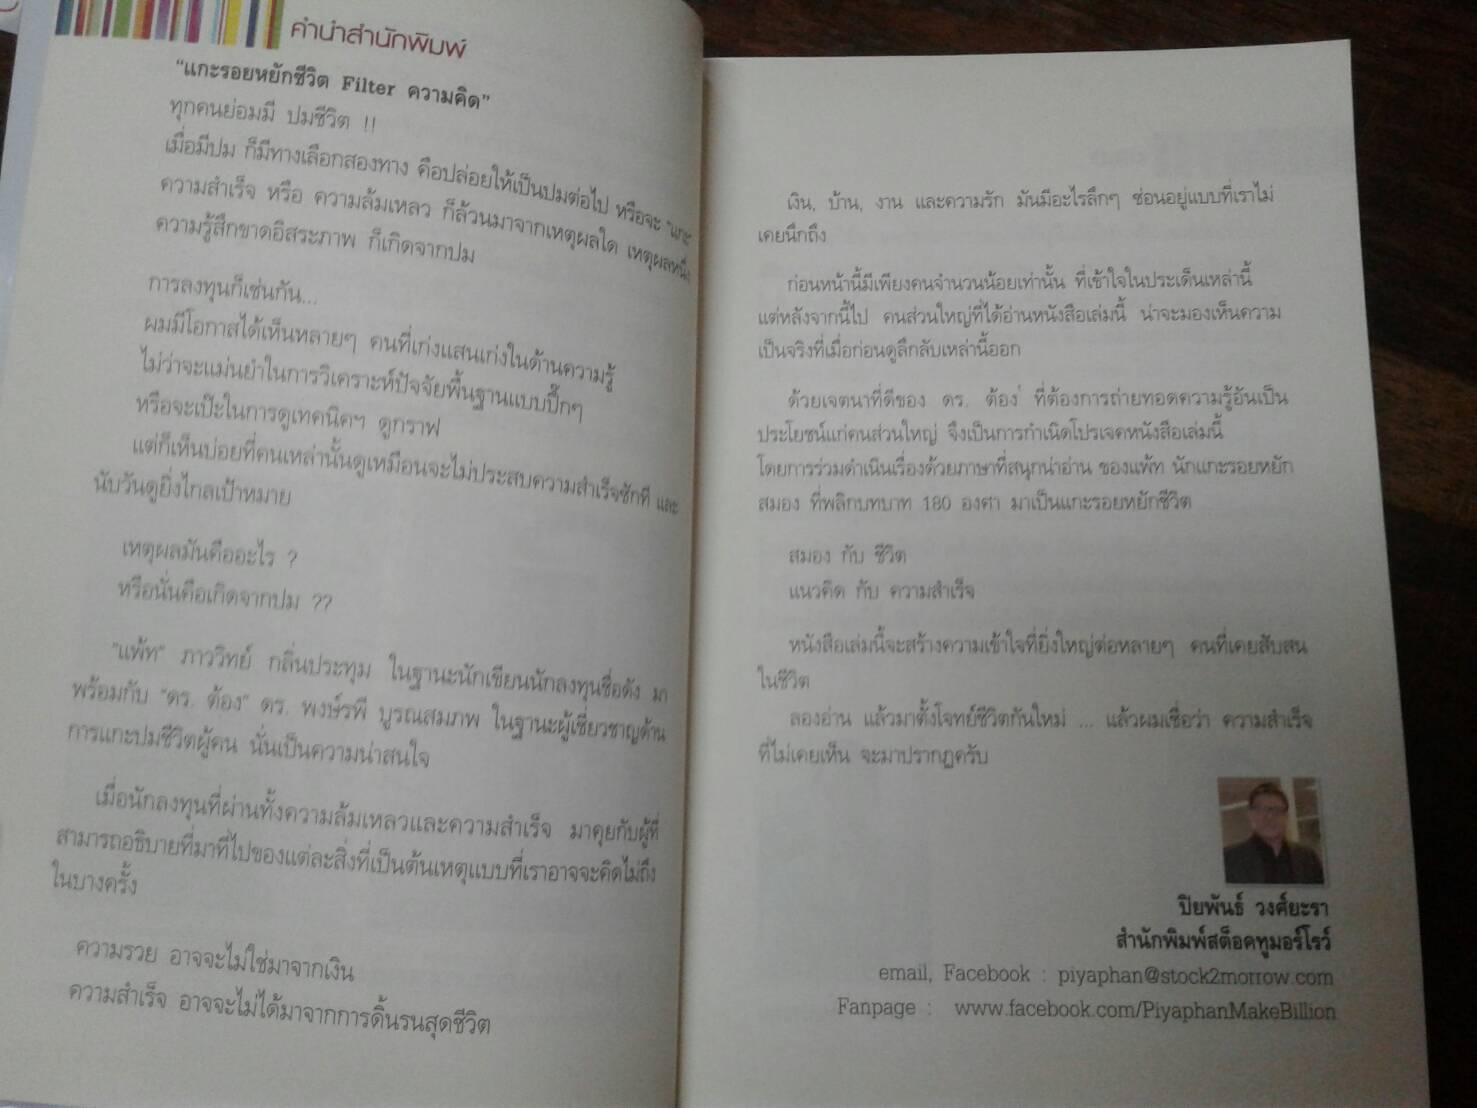 คำนำสำนักพิมพ์
“แกะรอยหยักชีวิต Filter ความคิด”
ทุกคนย่อมมี ปมชีวิต !!
เมื่อมีปม ก็มีทางเลือกสองทาง คือปล่อยให้เป็นปมต่อไป หรือจะ "แกะ"
ความสำเร็จ หรือ ความล้มเหลว ก็ล้วนมาจากเหตุผลใด เหตุผลหนึ่ง
ความรู้สึกขาดอิสระภาพ ก็เกิดจากปม
การลงทุนก็เช่นกัน...
ผมมีโอกาสได้เห็นหลายๆ คนที่เก่งแสนเก่งในด้านความรู้
ไม่ว่าจะแม่นยำในการวิเคราะห์ปัจจัยพื้นฐานแบบปึ๊กๆ
หรือจะเป๊ะในการดูเทคนิคฯ ดูกราฟ
แต่ก็เห็นบ่อยที่คนเหล่านั้นดูเหมือนจะไม่ประสบความสำเร็จซักที และ
นับวันดูยิ่งไกลเป้าหมาย
เหตุผลมันคืออะไร ?
หรือนั่นคือเกิดจากปม ??
"แพ้ท" ภาววิทย์ กลิ่นประทุม ในฐานะนักเขียนนักลงทุนชื่อดัง มา
พร้อมกับ "ดร. ต้อง" ดร. พงษ์รพี บูรณสมภพ ในฐานะผู้เชี่ยวชาญด้าน
การแกะปมชีวิตผู้คน นั่นเป็นความน่าสนใจ
เมื่อนักลงทุนที่ผ่านทั้งความล้มเหลวและความสำเร็จ มาคุยกับผู้ที่
สามารถอธิบายที่มาที่ไปของแต่ละสิ่งที่เป็นต้นเหตุแบบที่เราอาจจะคิดไม่ถึง
ในบางครั้ง
ความรวย อาจจะไม่ใช่มาจากเงิน
ความสำเร็จ อาจจะไม่ได้มาจากการดิ้นรนสุดชีวิต
เงิน, บ้าน, งาน และความรัก มันมีอะไรลึกๆ ซ่อนอยู่แบบที่เราไม่
เคยนึกถึง
ก่อนหน้านี้มีเพียงคนจำนวนน้อยเท่านั้น ที่เข้าใจในประเด็นเหล่านี้
แต่หลังจากนี้ไป คนส่วนใหญ่ที่ได้อ่านหนังสือเล่มนี้ น่าจะมองเห็นความ
เป็นจริงที่เมื่อก่อนดูลึกลับเหล่านี้ออก
ด้วยเจตนาที่ดีของ ดร. ต้อง ที่ต้องการถ่ายทอดความรู้อันเป็น
ประโยชน์แก่คนส่วนใหญ่ จึงเป็นการกำเนิดโปรเจคหนังสือเล่มนี้
โดยการร่วมดำเนินเรื่องด้วยภาษาที่สนุกน่าอ่าน ของแพ้ท นักแกะรอยหยัก
สมอง ที่พลิกบทบาท 180 องศา มาเป็นแกะรอยหยักชีวิต
สมอง กับ ชีวิต
แนวคิด กับ ความสำเร็จ
หนังสือเล่มนี้จะสร้างความเข้าใจที่ยิ่งใหญ่ต่อหลายๆ คนที่เคยสับสน
ในชีวิต
ลองอ่าน แล้วมาตั้งโจทย์ชีวิตกันใหม่ ... แล้วผมเชื่อว่า ความสำเร็จ
ที่ไม่เคยเห็น จะมาปรากฏครับ
ปิยพันธ์ วงศ์ยะรา
สำนักพิมพ์สต็อคทูมอร์โรว์
email, Facebook : piyaphan@stock2morrow.com
Fanpage : www.facebook.com/PiyaphanMakeBillion